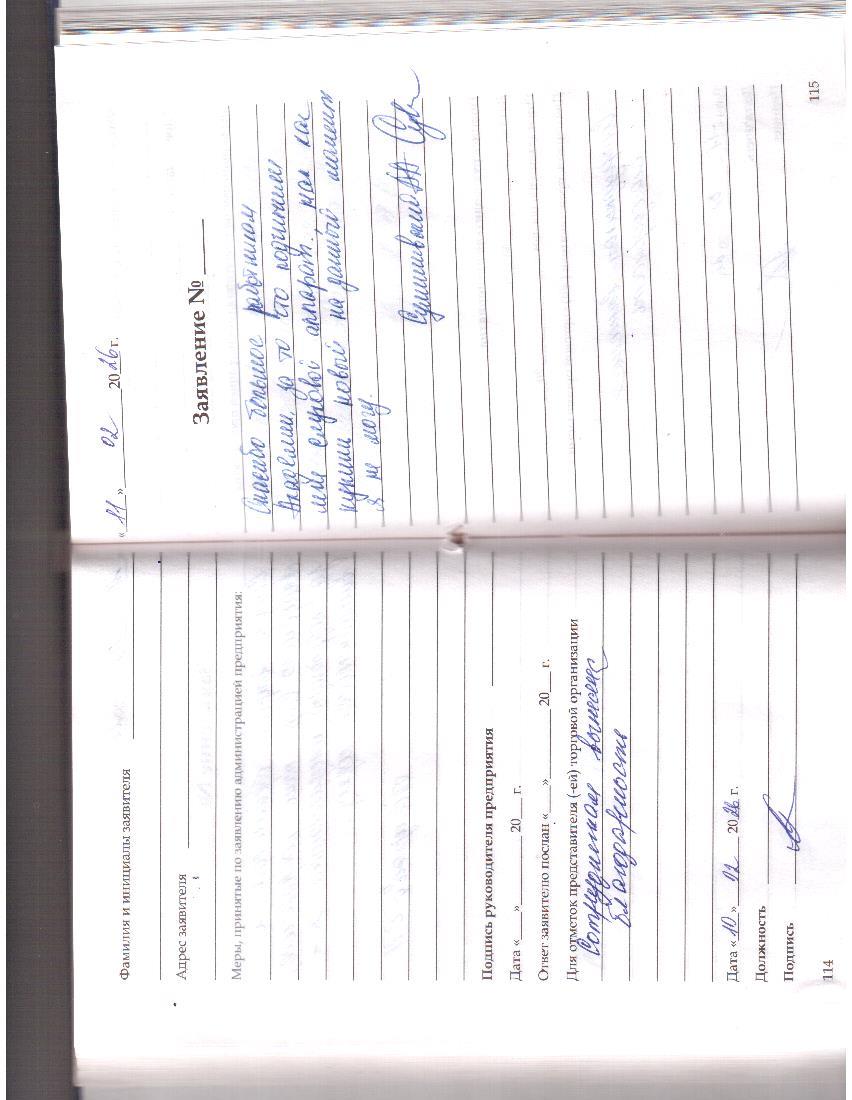 Фамилия и инициалы заявителя
Адрес заявителя
Меры, принятые по заявлению администрацией предприятия:
Подпись руководителя предприятия
Дата «___» ________ 20___ г.
Ответ заявителю послан «___» ________ 20___ г.
Для отметок представителя (-ей) торговой организации
Сотрудникам вынесена
благодарность
Дата «10» 02 2026 г.
Должность
Подпись
114
«11» 02 2026 г.
Заявление № ____
Спасибо большое работникам
Академии, за то что подчинили
мне слуховой аппарат. так как
купить новый на данный момент
я не могу.
115